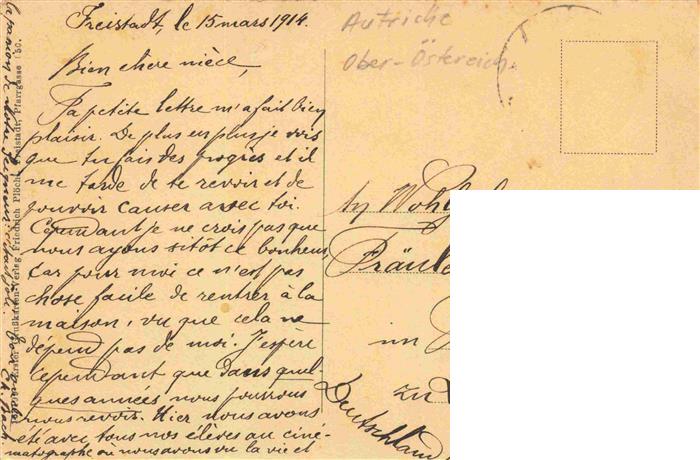 Freistadt, le 15 mars 1914.
Bien chère nièce,
Ta petite lettre m'a fait bien
plaisir. De plus en plus je vois
que tu fais des progrès et il
me tarde de te revoir et de
pouvoir causer avec toi.
Cependant je ne crois pas que
nous ayons sitôt ce bonheur,
car pour moi ce n'est pas
chose facile de rentrer à la
maison, vu que cela ne
dépend pas de moi. J'espère
cependant que dans quel-
ques années nous pourrons
nous revoir. Hier nous avons
été avec tous nos élèves au ciné-
matographe où nous avons vu la vie et
la passion de Notre Seigneur
Verlag Friedrich Plöchl, Freistadt, Pfarrgasse 150.
Autriche
Ober-Österreich
Deutschland